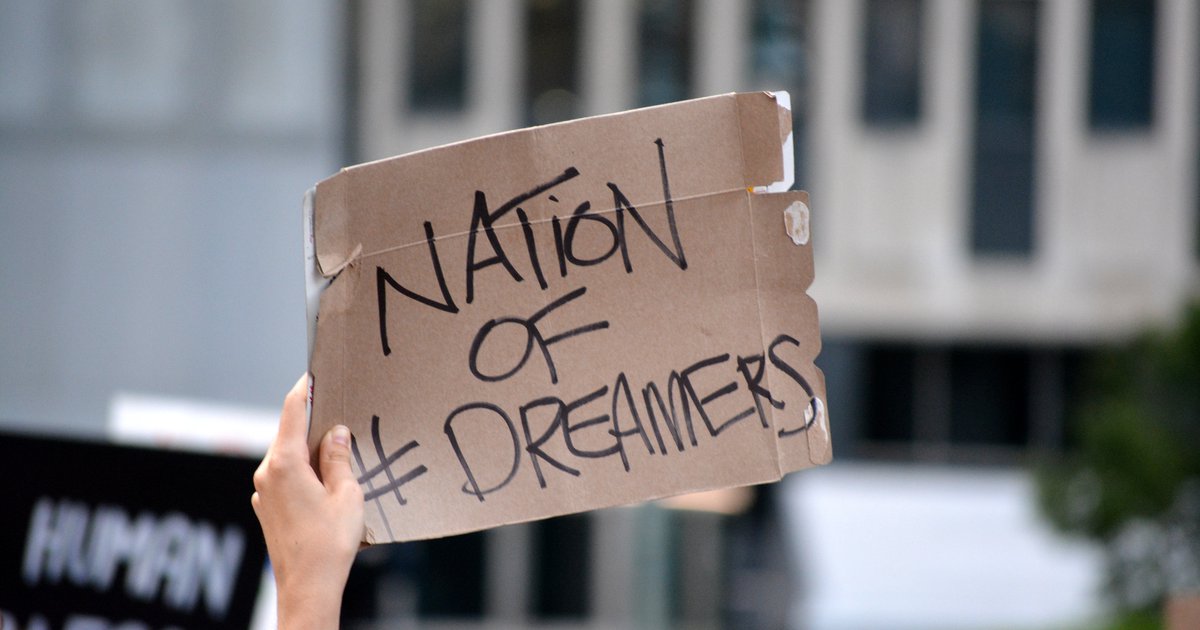 NATION
OF
# DREAMERS
HUMAN